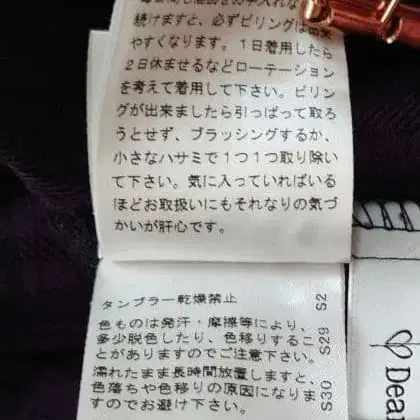 続けますと、必ずピリングは出来
やすくなります。1日着用したら
2日休ませるなどローテーション
を考えて着用して下さい。ピリン
グが出来ましたら引っぱって取ろ
うとせず、ブラッシングするか、
小さなハサミで1つ1つ取り除い
て下さい。気に入っていればいる
ほどお取扱いにもそれなりの気づ
かいが肝心です。
タンブラー乾燥禁止
色ものは発汗・摩擦等により、
多少脱色したり、色移りするこ
とがありますのでご注意下さい。
濡れたまま長時間放置しますと、
色落ちや色移りの原因になりま
すのでお避け下さい。
S2
S29
S30
Dea